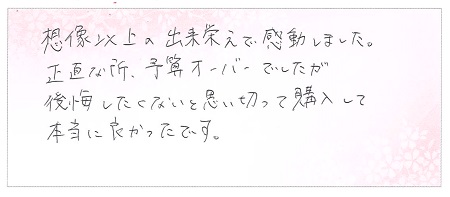 想像以上の出来栄えで感動しました。
正直な所、予算オーバーでしたが
後悔したくないと思い切って購入して
本当に良かったです。